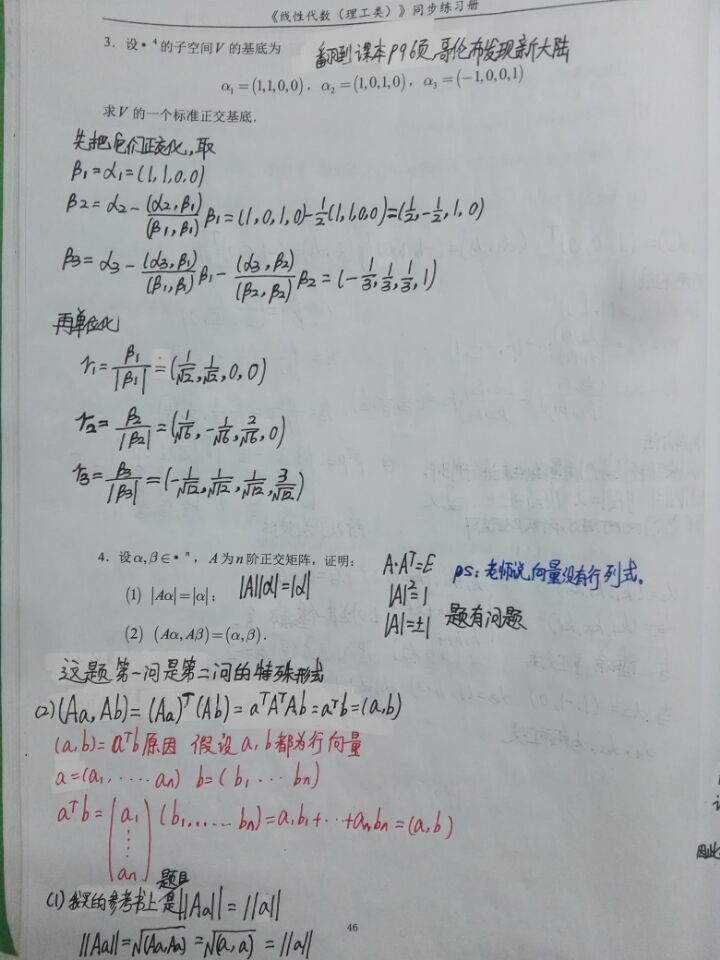 《线性代数（理工类）》同步练习册
3．设•⁴的子空间V的基底为
翻到课本P96项 哥伦布发现新大陆
α₁=(1,1,0,0)，α₂=(1,0,1,0)，α₃=(−1,0,0,1)
求V的一个标准正交基底．
先把它们正交化,取
β₁=α₁=(1,1,0,0)
β2=α2-(α2,β1)/(β1,β1)β1=(1,0,1,0)-1/2(1,1,0,0)=(1/2,-1/2,1,0)
β3=α3-(α3,β1)/(β1,β1)β1-(α3,β2)/(β2,β2)β2=(-1/3,1/3,1/3,1)
再单位化
r1=β1/|β1|=(1/√2,1/√2,0,0)
r2=β2/|β2|=(1/√6,-1/√6,2/√6,0)
r3=β3/|β3|=(-1/√12,1/√12,1/√12,3/√12)
4．设α,β∈•ⁿ，A为n阶正交矩阵，证明：
(1) |Aα|=|α|；
|A||α|=|α|
(2) (Aα,Aβ)=(α,β)．
A·Aᵀ=E
|A|²=1
|A|=±1
ps：老师说向量没有行列式。
题有问题
这题第一问是第二问的特殊形式
(2)(Aa,Ab)=(Aa)ᵀ(Ab)=aᵀAᵀAb=aᵀb=(a,b)
(a,b)=aᵀb原因 假设a,b都为行向量
a=(a1,····an) b=(b1···bn)
aᵀb=(a1⋮an)(b1,....bn)=a1b1+··+anbn=(a,b)
(1)我买的参考书上题目是||Aa||=||a||
||Aa||=√(Aa,Aa)=√(a,a)=||a||
因此
46